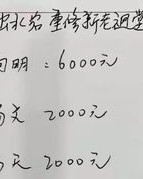 出水岩重修新老祖堂
明：6000元
2000元
天 2000元